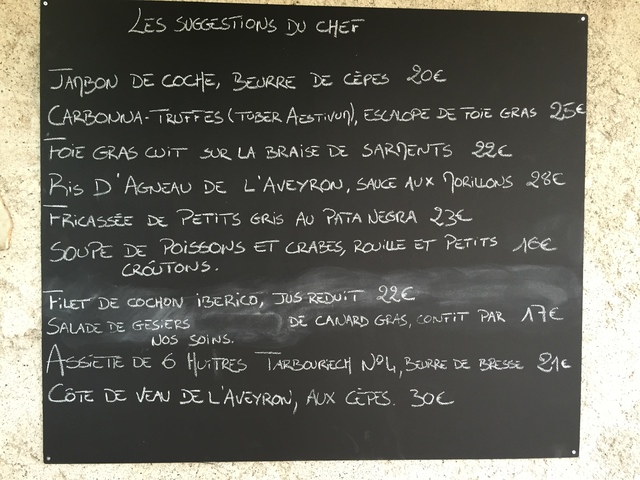 LES SUGGESTIONS DU CHEF
JAMBON DE COCHE, BEURRE DE CÈPES 20€
CARBONNA-TRUFFES (TUBER AESTIVUM), ESCALOPE DE FOIE GRAS 25€
FOIE GRAS CUIT SUR LA BRAISE DE SARMENTS 22€
RIS D'AGNEAU DE L'AVEYRON, SAUCE AUX MORILLONS 28€
FRICASSÉE DE PETITS GRIS AU PATA NEGRA 23€
SOUPE DE POISSONS ET CRABES, ROUILLE ET PETITS 16€
CROÛTONS.
FILET DE COCHON IBERICO, JUS REDUIT 22€
SALADE DE GESIERS DE CANARD GRAS, CONFIT PAR 17€
NOS SOINS.
ASSIETTE DE 6 HUITRES TARBOURIECH N°4, BEURRE DE BRESSE 21€
CÔTE DE VEAU DE L'AVEYRON, AUX CÈPES. 30€